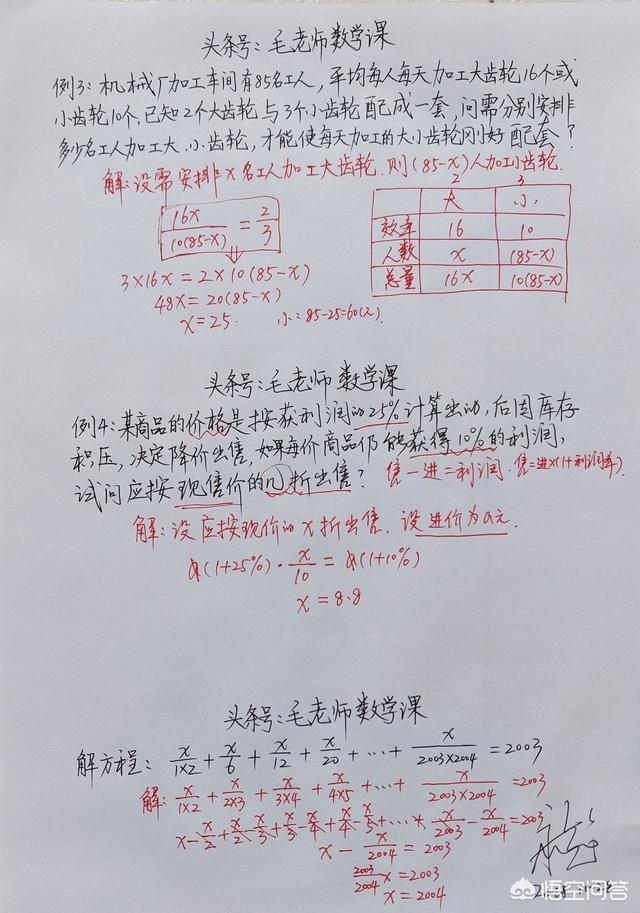 头条号：毛老师数学课
例3：机械厂加工车间有85名工人，平均每人每天加工大齿轮16个或
小齿轮10个，已知2个大齿轮与3个小齿轮配成一套，问需分别安排
多少名工人加工大、小齿轮，才能使每天加工的大小齿轮刚好配套？
解：设需安排x名工人加工大齿轮，则(85-x)人加工小齿轮.
16x/10(85-x) = 2/3
3×16x = 2×10(85-x)
48x = 20(85-x)
x = 25. 小：85-25=60(人)
2 3
大 小
效率 16 10
人数 x (85-x)
总量 16x 10(85-x)
头条号：毛老师数学课
例4：某商品的价格是按获利润的25%计算出的，后因库存
积压，决定降价出售，如果每价商品仍能获得10%的利润，
试问应按现售价的几折出售？
售-进=利润. 售=进×(1+利润率)
解：设应按现价的x折出售. 设进价为a元.
a(1+25%)·x/10 = a(1+10%)
x = 8.8
头条号：毛老师数学课
解方程： x/1×2 + x/6 + x/12 + x/20 + … + x/2003×2004 = 2003
解： x/1×2 + x/2×3 + x/3×4 + x/4×5 + … + x/2003×2004 = 2003
x - x/2 + x/2 - x/3 + x/3 - x/4 + x/4 - x/5 + … + x/2003 - x/2004 = 2003
x - x/2004 = 2003
2003/2004 x = 2003
x = 2004
悟空问答